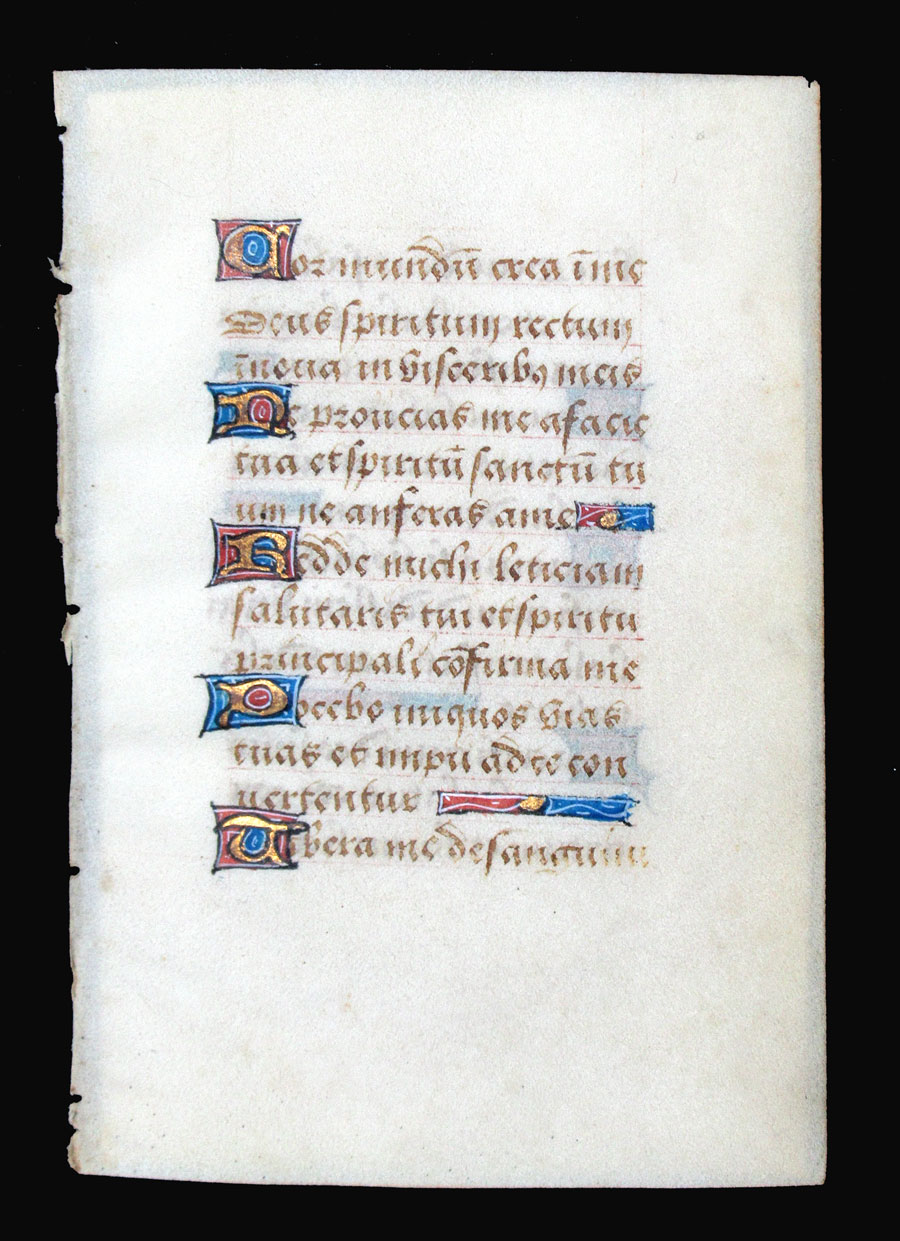 Cor mundū crea ī me
Deus spiritum rectum
īnoua in visceribꝰ meis
Ne proiicias me a facie
tua et spiritū sanctū tu
um ne auferas a me
Redde michi leticiam
salutaris tui et spiritu
principali cōfirma me
Docebo iniquos vias
tuas et impii ad te con
uertentur
Libera me de sanguini